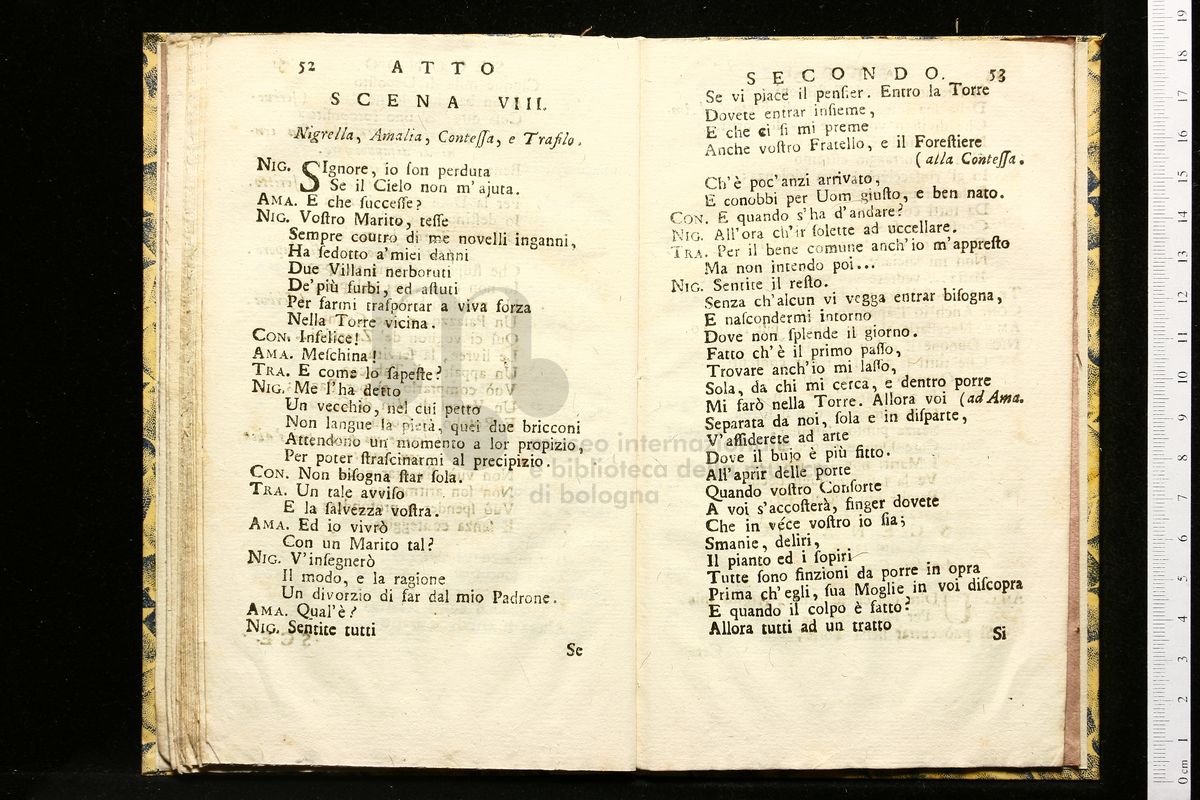 52 ATTO
SCENA VIII.
Nigrella, Amalia, Conteſſa, e Traſilo.
NIG. SIgnore, io ſon perduta
Se il Cielo non m'ajuta.
AMA. E che ſucceſſe?
NIG. Voſtro Marito, teſſe
Sempre contro di me novelli inganni,
Ha ſedotto a'miei danni
Due Villani nerboruti
De'più furbi, ed aſtuti
Per farmi traſportar a viva forza
Nella Torre vicina.
CON. Infelice!
AMA. Meſchina!
TRA. E come lo ſapeſte?
NIG. Me l'ha detto
Un vecchio, nel cui petto
Non langue la pietà, quei due bricconi
Attendono un momento a lor propizio,
Per poter ſtraſcinarmi al precipizio.
CON. Non biſogna ſtar ſola.
TRA. Un tale avviſo
E la ſalvezza voſtra.
AMA. Ed io vivrò
Con un Marito tal?
NIG. V'inſegnerò
Il modo, e la ragione
Un divorzio di far dal mio Padrone.
AMA. Qual'è?
NIG. Sentite tutti
Se
SECONDO. 53
Se vi piace il penſier. Entro la Torre
Dovete entrar inſieme,
E che ci ſi mi preme
Anche voſtro Fratello, e il Foreſtiere
(alla Conteſſa.
Ch'è poc'anzi arrivato,
E conobbi per Uom giuſto, e ben nato.
CON. E quando s'ha d'andare?
NIG. All'ora ch'ir ſolette ad uccellare.
TRA. Per il bene comune anch'io m'appreſto
Ma non intendo poi...
NIG. Sentite il reſto.
Senza ch'alcun vi vegga entrar biſogna,
E naſcondermi intorno
Dove non ſplende il giorno.
Fatto ch'è il primo paſſo,
Trovare anch'io mi laſſo,
Sola, da chi mi cerca, e dentro porre
Mi farò nella Torre. Allora voi (ad Ama.
Separata da noi, ſola e in diſparte,
V'aſſiderete ad arte
Dove il bujo è più fitto.
All'aprir delle porte
Quando voſtro Conſorte
A voi s'accoſterà, finger dovete
Che in véce voſtro io ſia;
Smanie, deliri,
Il pianto ed i ſopiri
Tutte ſono finzioni da porre in opra
Prima ch'egli, ſua Moglie in voi diſcopra
E quando il colpo è fatto?
Allora tutti ad un tratto
Si
museo internazionale
e biblioteca della musica
di bologna